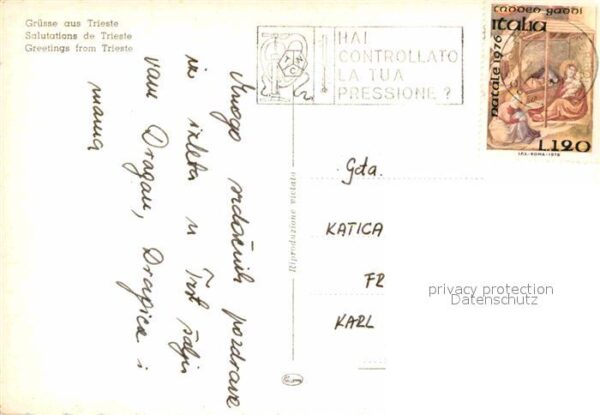 Grüsse aus Trieste
Salutations de Trieste
Greetings from Trieste
HAI
CONTROLLATO
LA TUA
PRESSIONE?
taddeo gaddi
Italia
natale 1976
L.120
I.P.S.-ROMA-1976
Mnogo srdačnih pozdrava
iz izleta u Trst šalju
vam Dragan, Dragica i
mama
Riproduzione vietata
Gđa.
KATICA
FR
KARL
privacy protection
Datenschutz